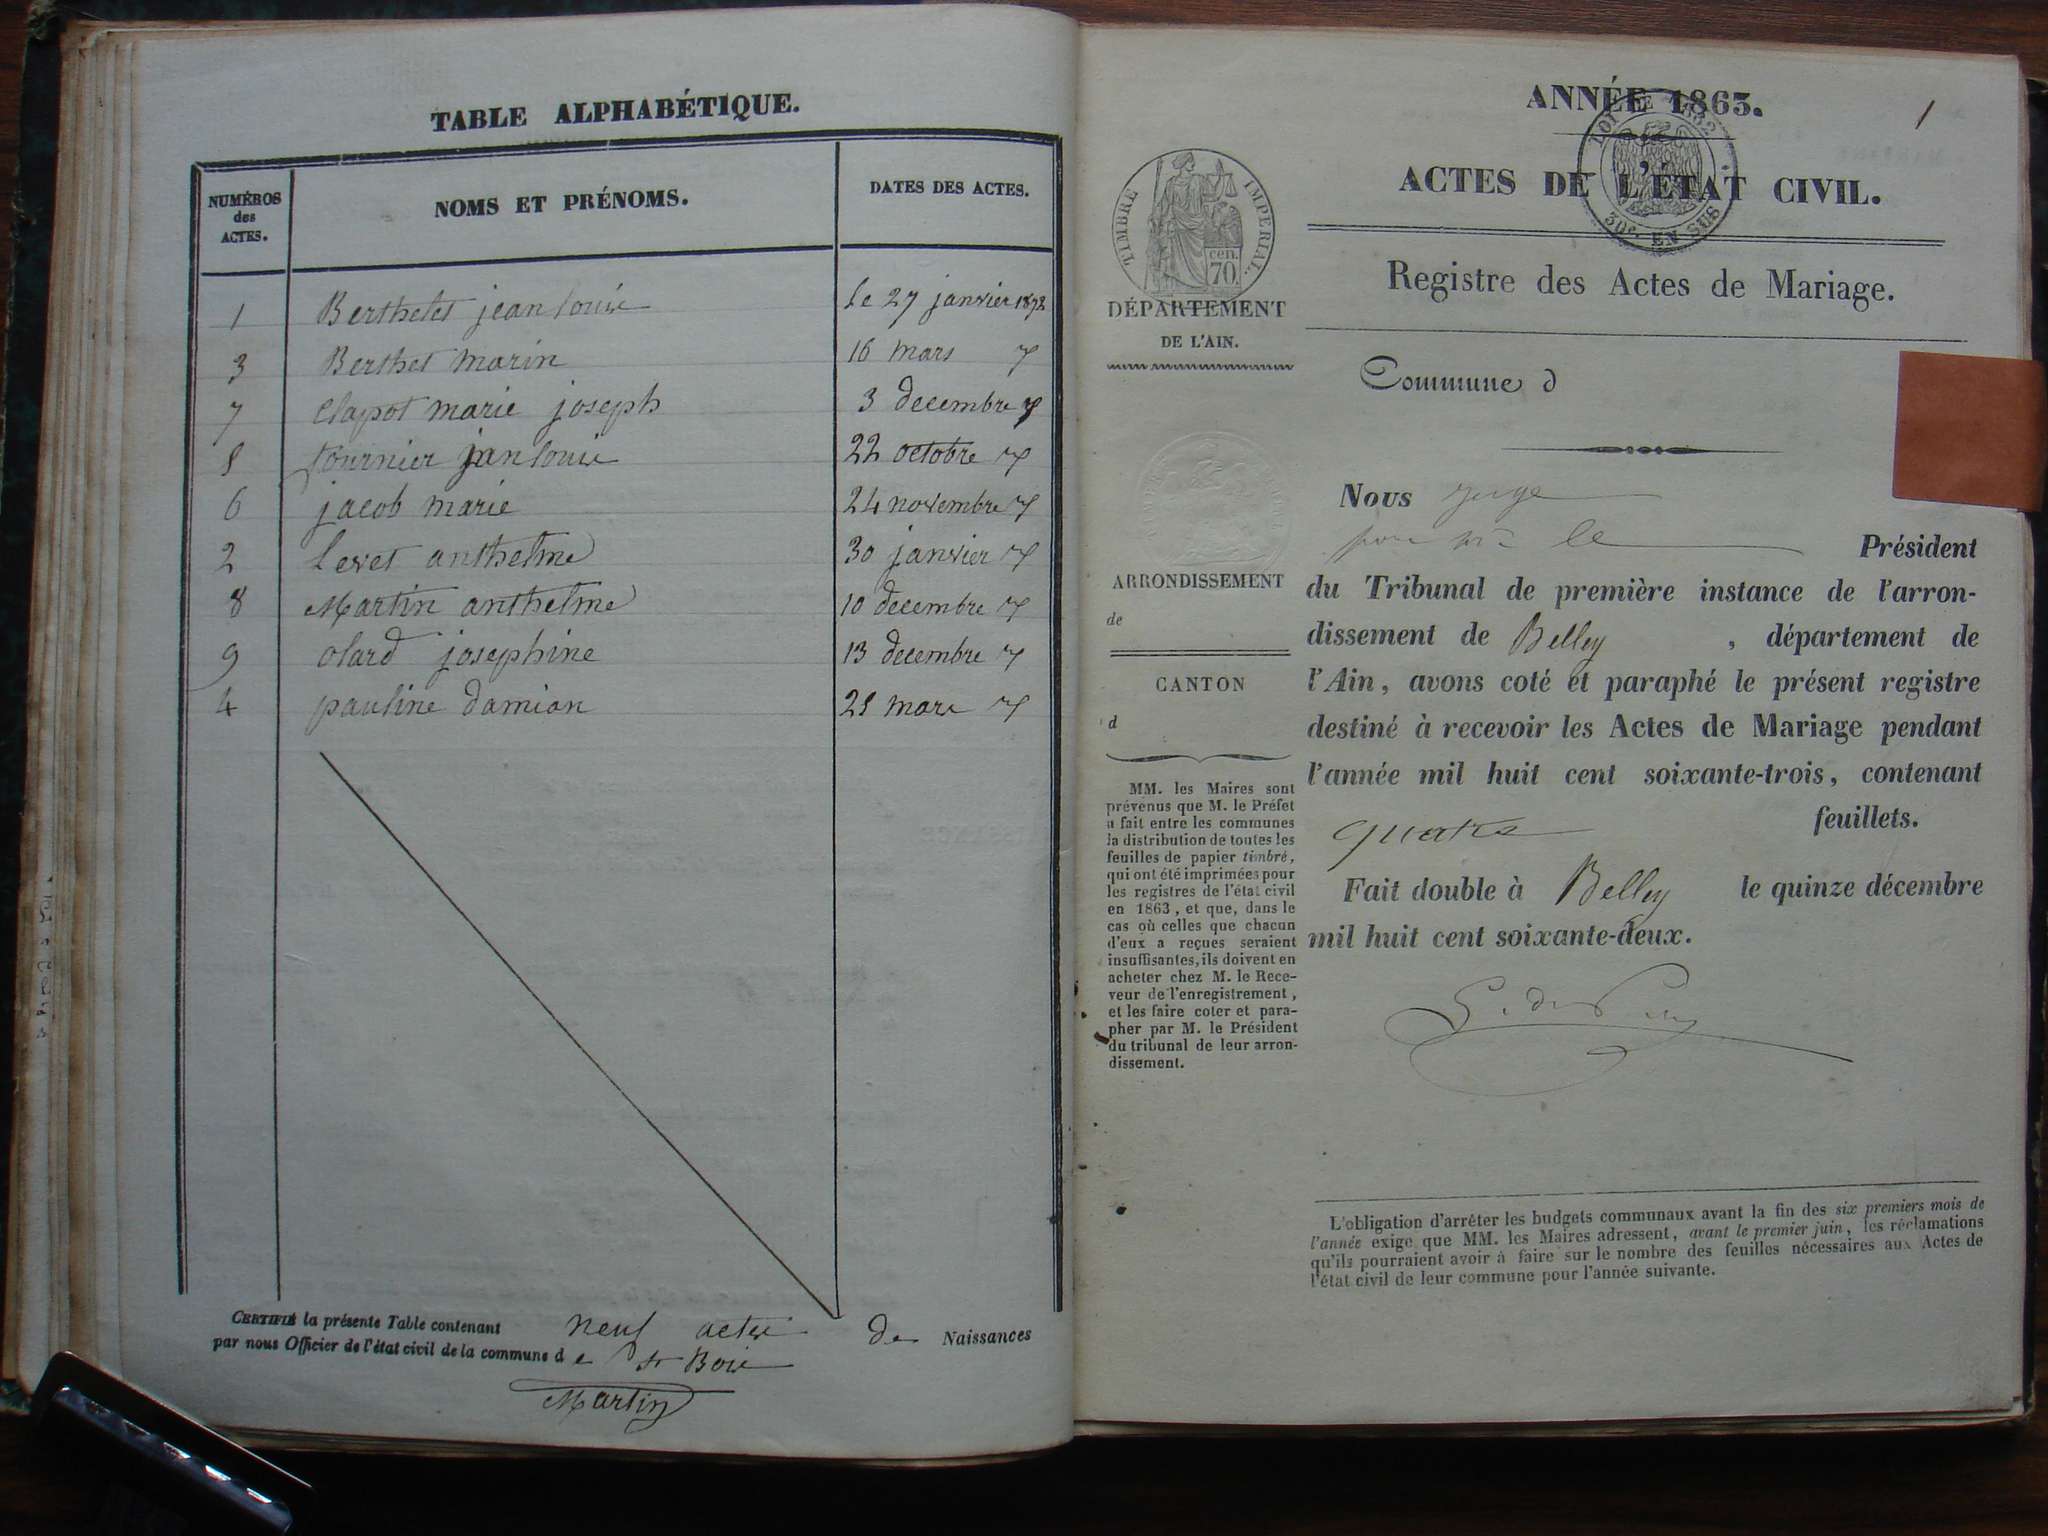 TABLE ALPHABÉTIQUE.
NUMÉROS des ACTES.
NOMS ET PRÉNOMS.
DATES DES ACTES.
1 Berthelet jean louis le 27 janvier 1872
3 Berthet marin 16 mars
7 Clapot marie joseph 3 decembre
5 fournier jan louis 22 octobre
6 jacob marie 24 novembre
2 Levet anthelme 30 janvier
8 Martin anthelme 10 decembre
9 olard josephine 13 decembre
4 pauline damian 25 mars
CERTIFIÉ la présente Table contenant neuf actes de Naissances
par nous Officier de l'état civil de la commune de St Bois
Martin
1
ANNÉE 1863.
ACTES DE L'ÉTAT CIVIL.
LOI DE 1862
EN SUS
Registre des Actes de Mariage.
TIMBRE IMPÉRIAL.
cen.
70.
DÉPARTEMENT
DE L'AIN.
Commune d
ARRONDISSEMENT
de
CANTON
d
MM. les Maires sont
prévenus que M. le Préfet
a fait entre les communes
la distribution de toutes les
feuilles de papier timbré,
qui ont été imprimées pour
les registres de l'état civil
en 1863, et que, dans le
cas où celles que chacun
d'eux a reçues seraient
insuffisantes, ils doivent en
acheter chez M. le Rece-
veur de l'enregistrement,
et les faire coter et para-
pher par M. le Président
du tribunal de leur arron-
dissement.
Nous juge
pour le Président
du Tribunal de première instance de l'arron-
dissement de Belley, département de
l'Ain, avons coté et paraphé le présent registre
destiné à recevoir les Actes de Mariage pendant
l'année mil huit cent soixante-trois, contenant
quatre feuillets.
Fait double à Belley le quinze décembre
mil huit cent soixante-deux.
L'obligation d'arrêter les budgets communaux avant la fin des six premiers mois de
l'année exige que MM. les Maires adressent, avant le premier juin, les réclamations
qu'ils pourraient avoir à faire sur le nombre des feuilles nécessaires aux Actes de
l'état civil de leur commune pour l'année suivante.